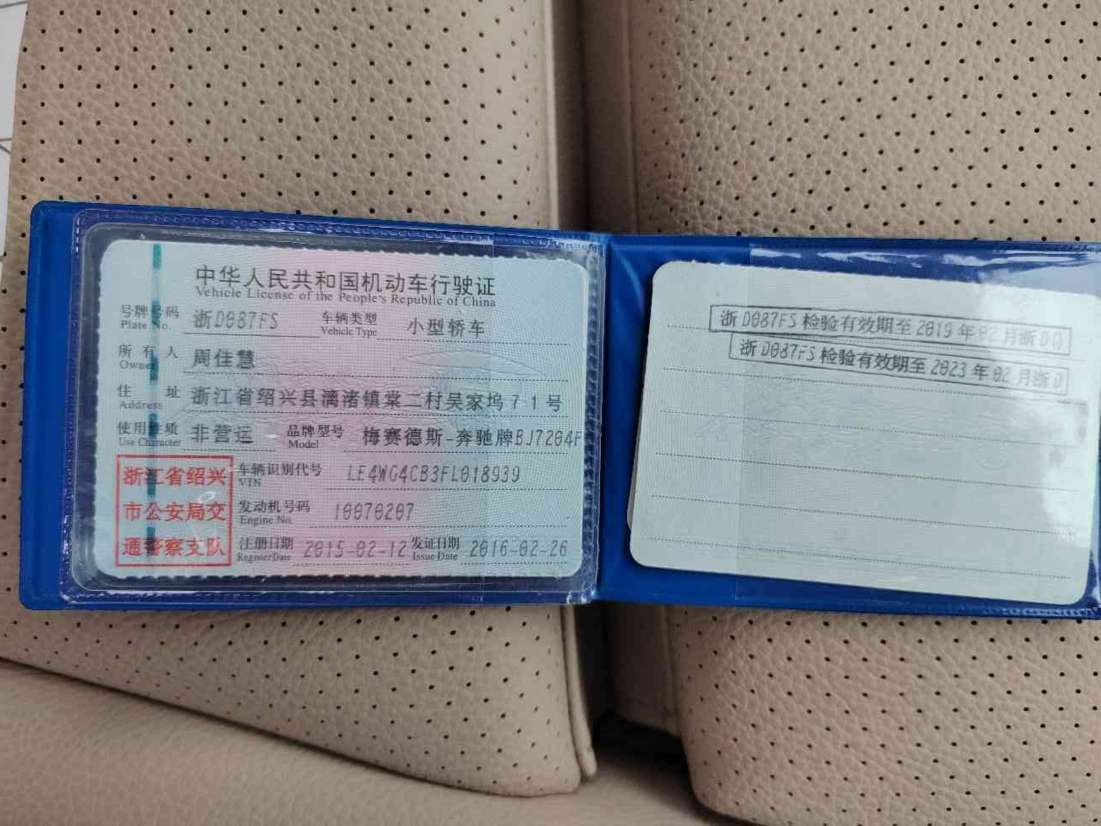 中华人民共和国机动车行驶证
Vehicle License of the People's Republic of China
号牌号码 浙D087FS 车辆类型 小型轿车
Plate No. Vehicle Type
所有人 周佳慧
Owner
住址 浙江省绍兴县漓渚镇棠二村吴家坞71号
Address
使用性质 非营运 品牌型号 梅赛德斯-奔驰牌BJ7204F
Use Character Model
浙江省绍兴
市公安局交
通警察支队
车辆识别代号 LE4WG4CB3FL018939
VIN
发动机号码 10070207
Engine No.
注册日期 2015-02-12 发证日期 2016-02-26
Register Date Issue Date
浙D087FS检验有效期至2019年02月浙D
浙D087FS检验有效期至2023年02月浙D